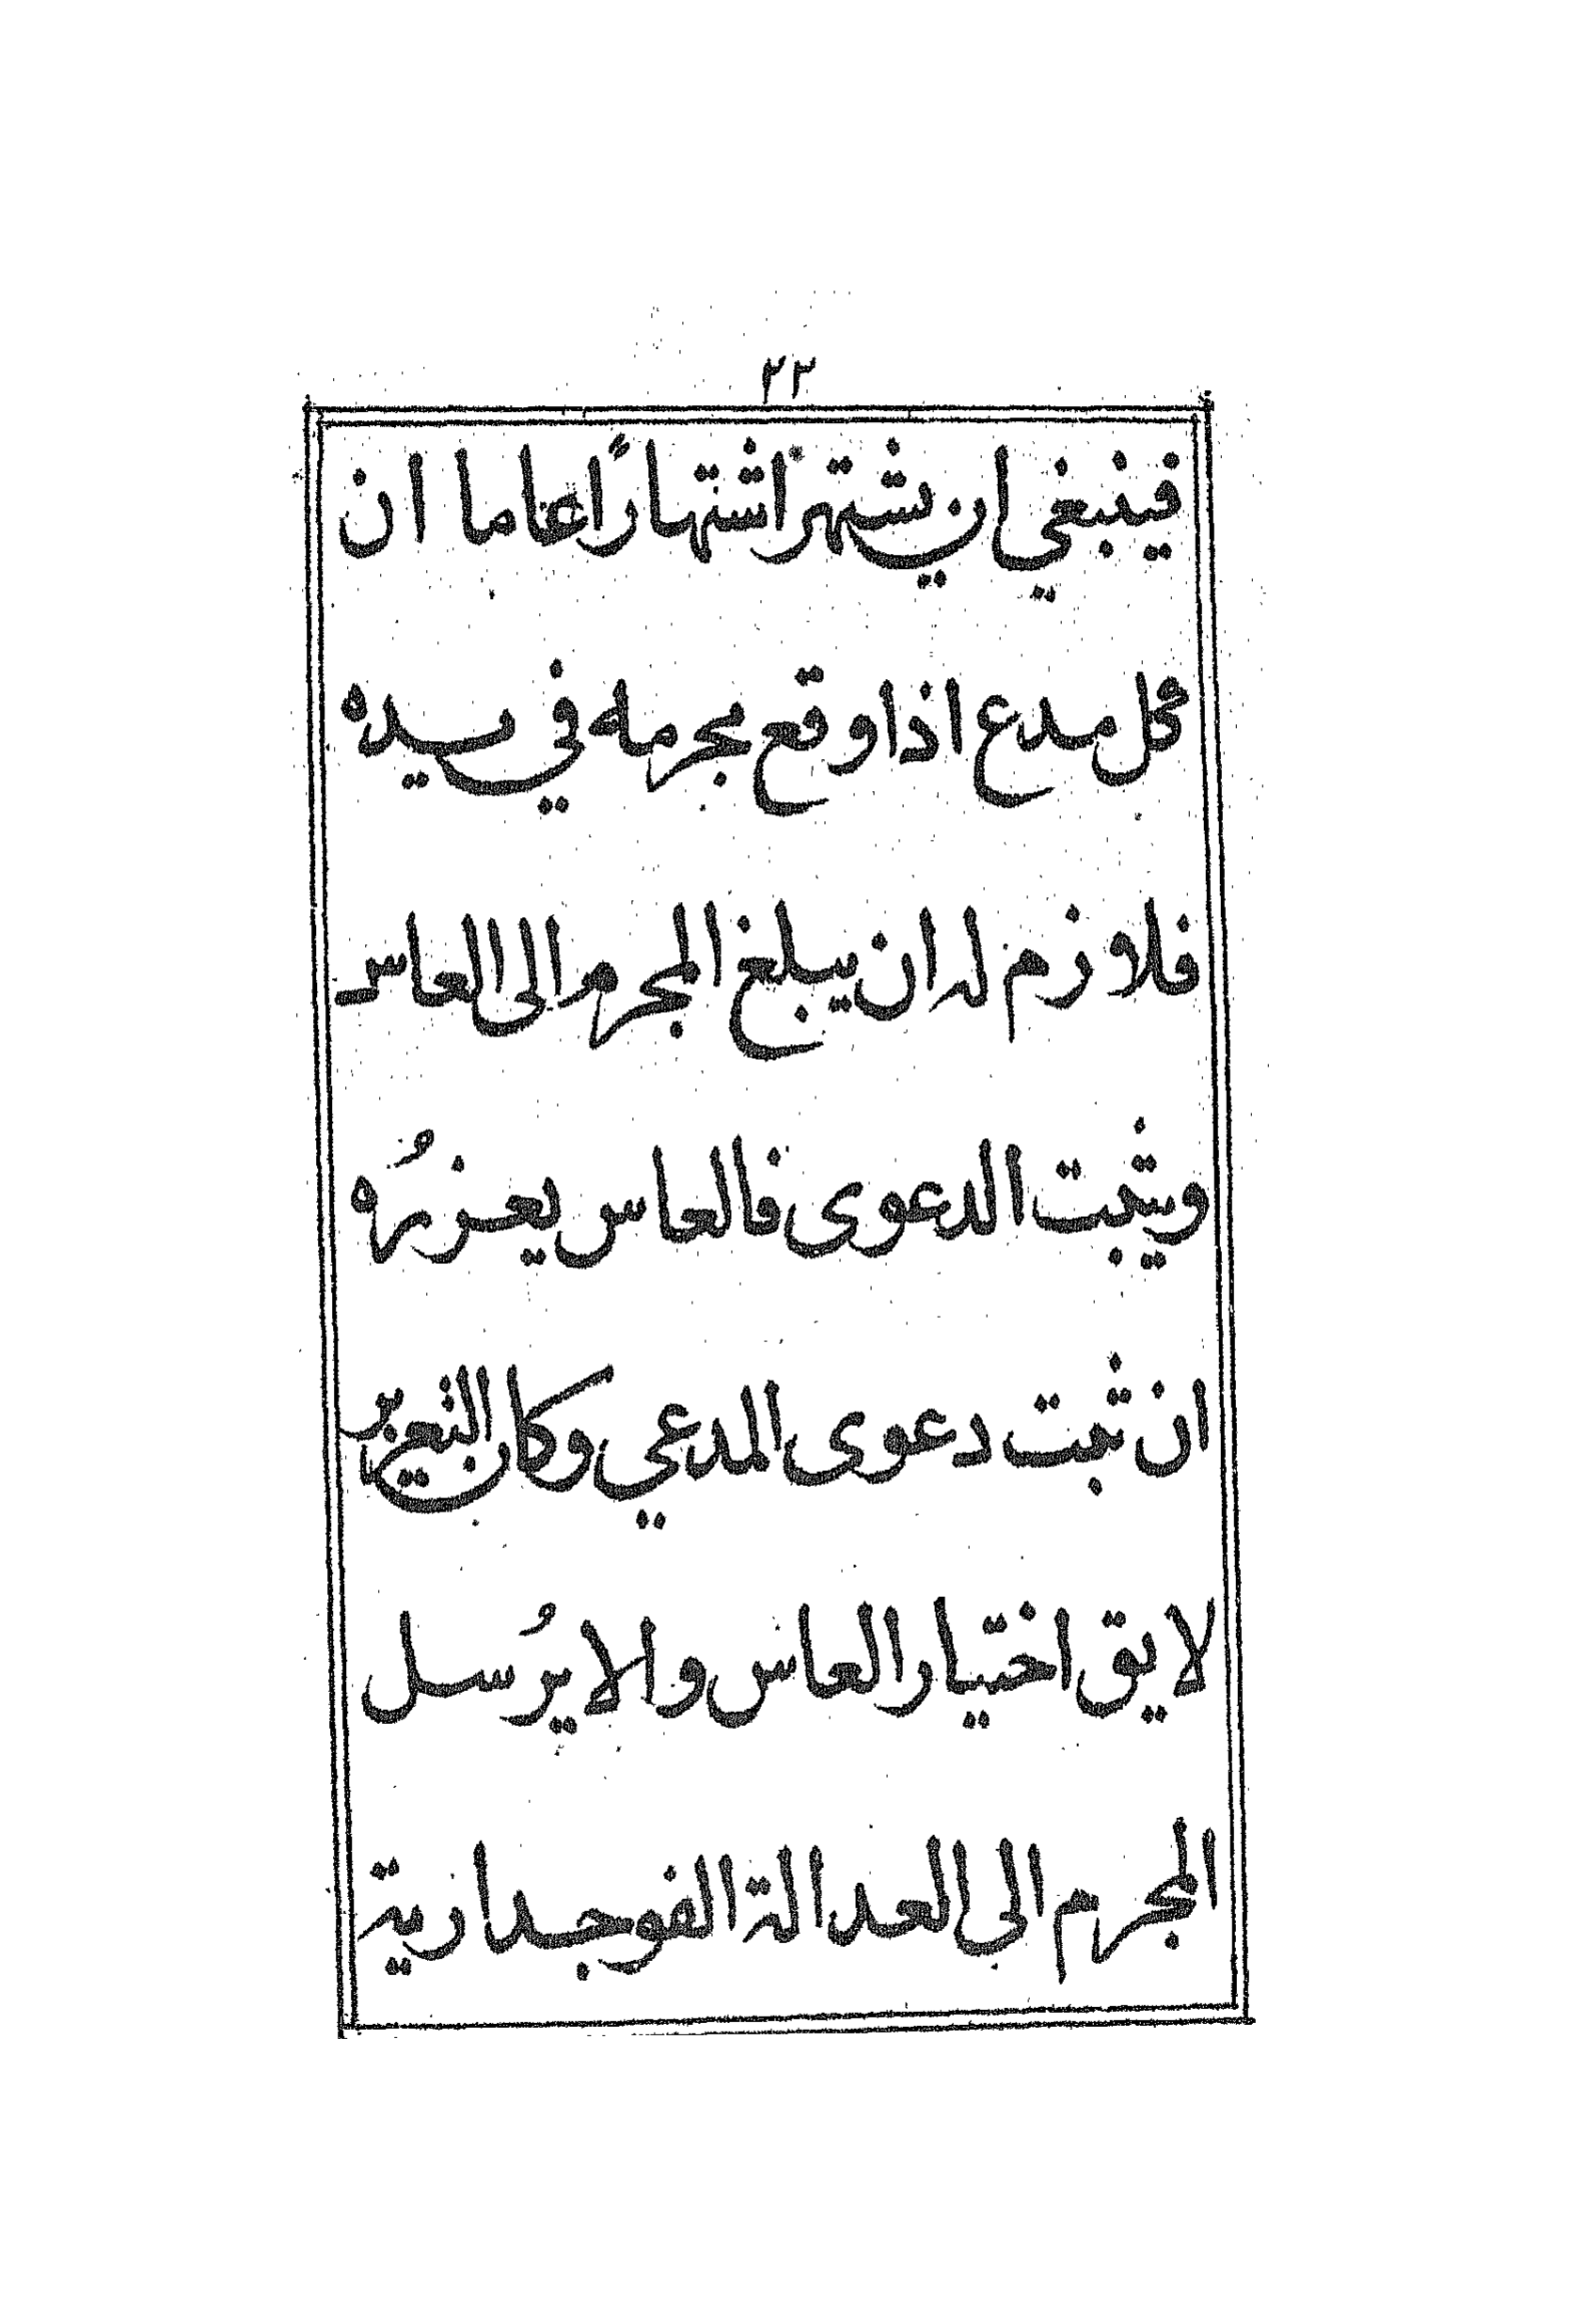 ٢٢
فينبغي ان يشتهر اشتهارًا عاما ان
كل مدع اذا وقع مجرمه في يده
فلاوزم له ان يبلغ المجرم الى العاس
ويثبت الدعوى فالعاس يعزرُه
ان ثبت دعوى المدعي وكان التعزير
لايق اختيار العاس والا يرُسل
المجرم الى العدالة الفوجدارية